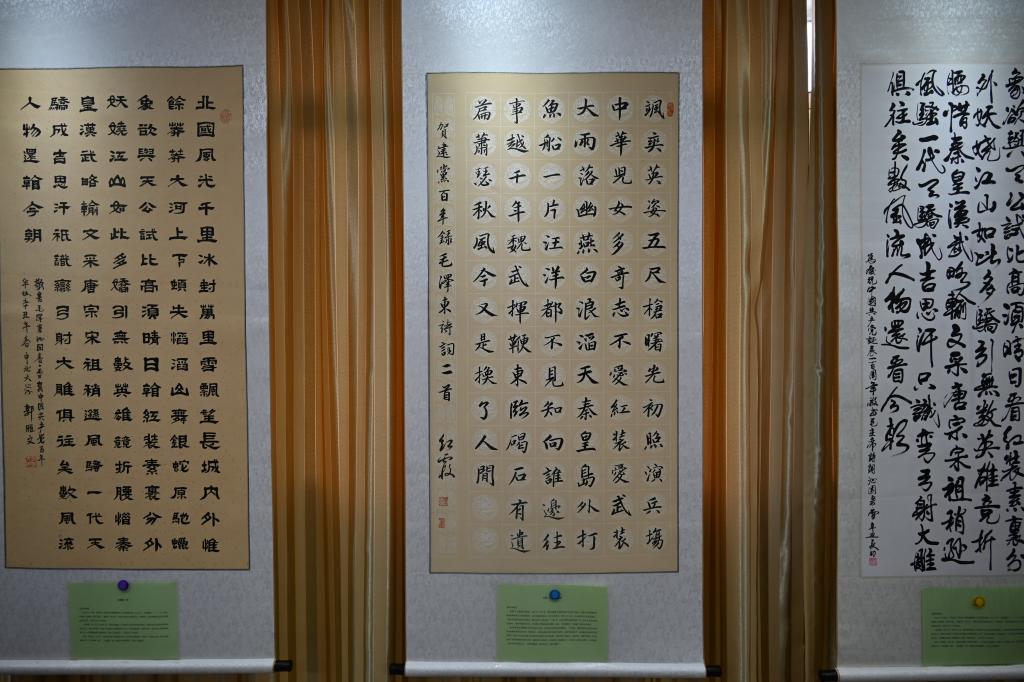 北國風光千里冰封萬里雪飄望長城內外惟
餘莽莽大河上下頓失滔滔山舞銀蛇原馳蠟
象欲與天公試比高須晴日看紅裝素裹分外
妖嬈江山如此多嬌引無數英雄競折腰惜秦
皇漢武略輸文采唐宗宋祖稍遜風騷一代天
驕成吉思汗祇識彎弓射大雕俱往矣數風流
人物還看今朝
敬書毛澤東沁園春雪賀中國共產黨百年
辛丑年春
颯爽英姿五尺槍曙光初照演兵場
中華兒女多奇志不愛紅裝愛武裝
大雨落幽燕白浪滔天秦皇島外打
魚船一片汪洋都不見知向誰邊往
事越千年魏武揮鞭東臨碣石有遺
篇蕭瑟秋風今又是換了人間
賀建黨百年錄毛澤東詩詞二首 紅霞
象欲與天公試比高須晴日看紅裝素裹分
外妖嬈江山如此多驕引無數英雄竞折
腰惜秦皇漢武略輸文采唐宗宋祖稍遜
風騷一代天驕成吉思汗只識彎弓射大雕
俱往矣數風流人物還看今朝
為慶祝中國共產党誕辰一百周年敬书毛主席詩詞沁園春雪